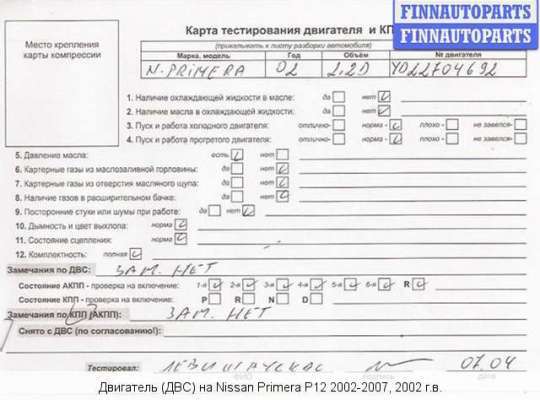 FINNAUTOPARTS
FINNAUTOPARTS
Место крепления
карты компрессии
Карта тестирования двигателя и КП
(прикалывать к листу разборки автомобиля)
Марка, модель Год Объём № двигателя
N-PRIMERA 02 2,2D YD22704692
1. Наличие охлаждающей жидкости в масле: да нет
2. Наличие масла в охлаждающей жидкости: да нет
3. Пуск и работа холодного двигателя: отлично- норма - плохо- не завелся-
4. Пуск и работа прогретого двигателя: отлично- норма - плохо - не завелся-
5. Давление масла: есть нет
6. Картерные газы из маслозаливной горловины: да нет
7. Картерные газы из отверстия масляного щупа: да нет
8. Наличие газов в расширительном бачке: да нет
9. Посторонние стуки или шумы при работе: да нет
10. Дымность и цвет выхлопа: норма
11. Состояние сцепления: норма
12. Комплектность: полная
Замечания по ДВС: ЗАМ. НЕТ
Состояние АКПП - проверка на включение: 1-я 2-я 3-я 4-я 5-я 6-я R
Состояние КПП - проверка на включение: P R N D
Замечания по КПП (АКПП): ЗАМ. НЕТ
Снято с ДВС (по согласованию!):
Тестировал: 07.04
Двигатель (ДВС) на Nissan Primera P12 2002-2007, 2002 г.в.